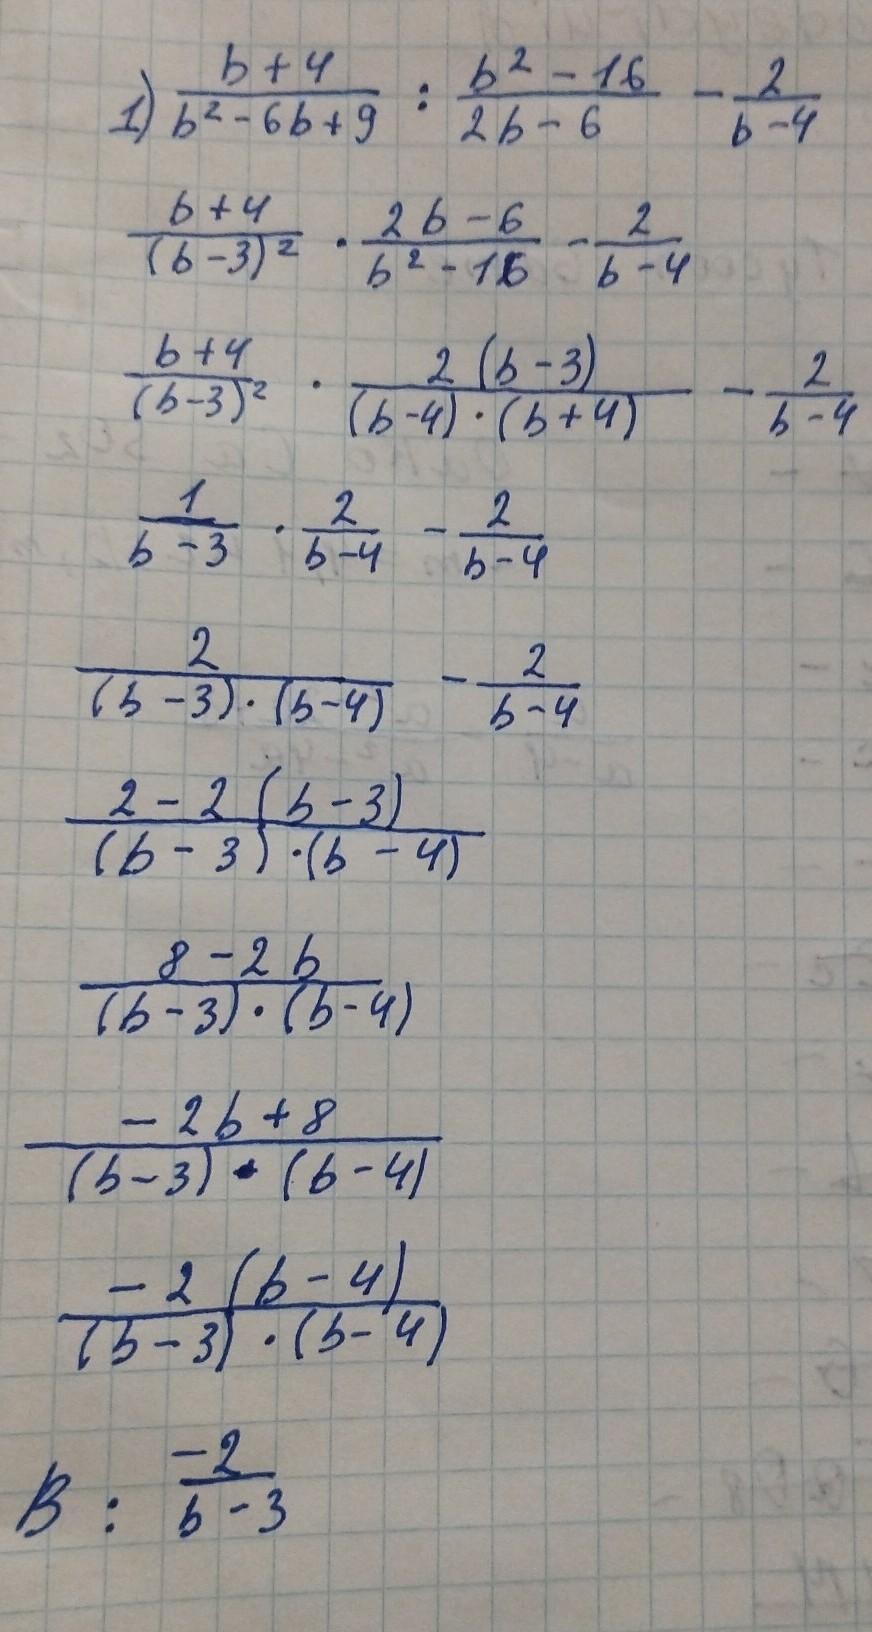 1) \frac{b+4}{b^2-6b+9} : \frac{b^2-16}{2b-6} - \frac{2}{b-4}
\frac{b+4}{(b-3)^2} \cdot \frac{2b-6}{b^2-16} - \frac{2}{b-4}
\frac{b+4}{(b-3)^2} \cdot \frac{2(b-3)}{(b-4)\cdot(b+4)} - \frac{2}{b-4}
\frac{1}{b-3} \cdot \frac{2}{b-4} - \frac{2}{b-4}
\frac{2}{(b-3)\cdot(b-4)} - \frac{2}{b-4}
\frac{2-2(b-3)}{(b-3)\cdot(b-4)}
\frac{8-2b}{(b-3)\cdot(b-4)}
\frac{-2b+8}{(b-3)\cdot(b-4)}
\frac{-2(b-4)}{(b-3)\cdot(b-4)}
В: \frac{-2}{b-3}